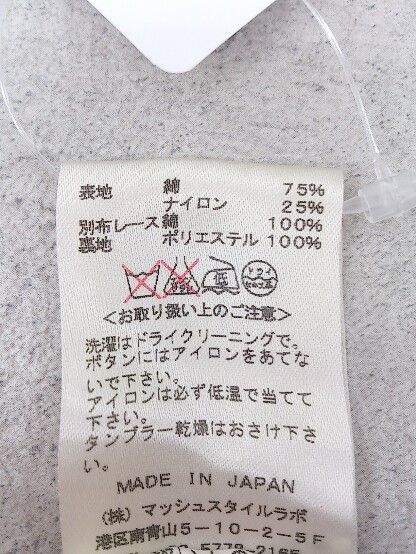 表地 綿 75%
ナイロン 25%
別布レース綿 100%
裏地 ポリエステル 100%
低 ドライ
<お取り扱い上のご注意>
洗濯はドライクリーニングで。
ボタンにはアイロンをあてな
いで下さい。
アイロンは必ず低温で当てて
下さい。
タンブラー乾燥はおさけ下さ
い。
MADE IN JAPAN
(株)マッシュスタイルラボ
港区南青山5-10-2-5F